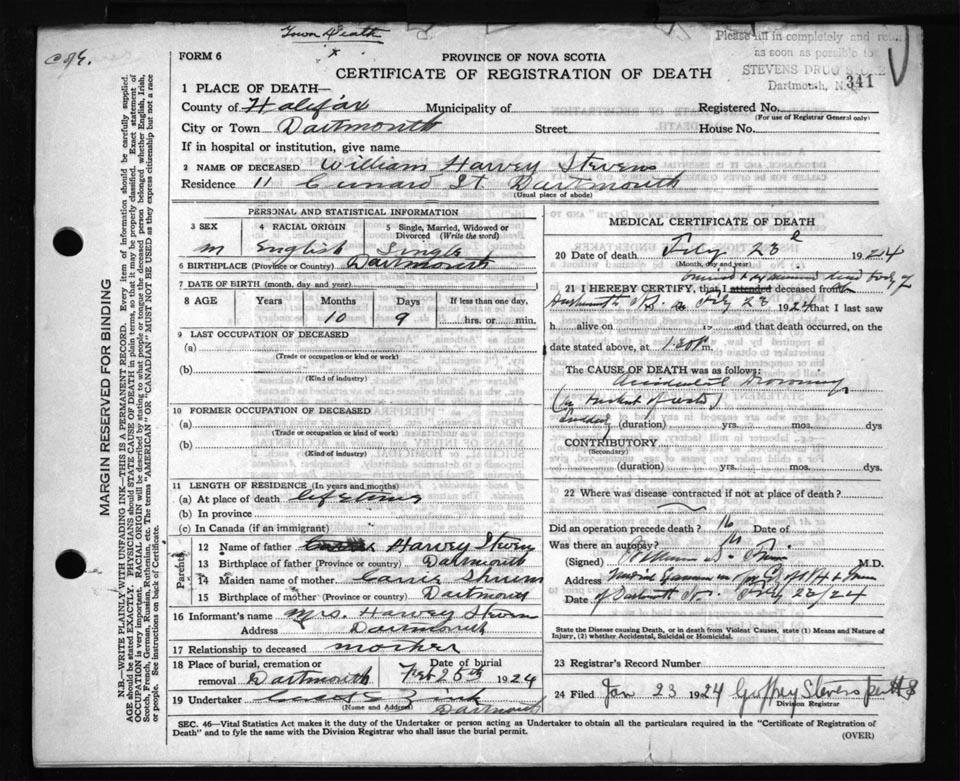 Town Death
x
Please fill in completely and return
as soon as possible to
STEVENS DRUG STORE
Dartmouth, N.S.
341
FORM 6
PROVINCE OF NOVA SCOTIA
CERTIFICATE OF REGISTRATION OF DEATH
1 PLACE OF DEATH—
County of Halifax Municipality of Registered No.
(For use of Registrar General only)
City or Town Dartmouth Street House No.
If in hospital or institution, give name
2 NAME OF DECEASED William Harvey Stevens
Residence 11 Cunard St Dartmouth
(Usual place of abode)
PERSONAL AND STATISTICAL INFORMATION
3 SEX 4 RACIAL ORIGIN 5 Single, Married, Widowed or Divorced (Write the word)
M English Single
6 BIRTHPLACE (Province or Country) Dartmouth
7 DATE OF BIRTH (month, day and year)
8 AGE Years Months Days If less than one day,
10 9 hrs. or min.
9 LAST OCCUPATION OF DECEASED
(a)
(Trade or occupation or kind or work)
(b)
(Kind of industry)
10 FORMER OCCUPATION OF DECEASED
(a)
(Trade or occupation or kind of work)
(b)
(Kind of industry)
11 LENGTH OF RESIDENCE (In years and months)
(a) At place of death lifetime
(b) In province
(c) In Canada (if an immigrant)
Parents
12 Name of father Harvey Stevens
13 Birthplace of father (Province or country) Dartmouth
14 Maiden name of mother Carrie
15 Birthplace of mother (Province or country) Dartmouth
16 Informant's name Mrs. Harvey Stevens
Address Dartmouth
17 Relationship to deceased mother
18 Place of burial, cremation or removal Dartmouth Date of burial Feb 25th 1924
19 Undertaker Zink
(Name and Address) Dartmouth
MEDICAL CERTIFICATE OF DEATH
20 Date of death Feby 23d 1924
(Month, day and year)
viewed & examined dead body of
21 I HEREBY CERTIFY, that I attended deceased from
Dartmouth N.S. on Feby 23 1924 that I last saw
h alive on 19 and that death occurred, on the
date stated above, at 1.30 P.m.
The CAUSE OF DEATH was as follows:
Accidental Drowning
(in bucket of water)
Sudden (duration) yrs. mos. dys
CONTRIBUTORY
(Secondary)
(duration) yrs. mos. dys.
22 Where was disease contracted if not at place of death?
Did an operation precede death? No Date of
Was there an autopsy? No
(Signed) M.D.
Address Medical Examiner
Date of Dartmouth N.S. Feby 23/24
State the Disease causing Death, or in death from Violent Causes, state (1) Means and Nature of
Injury, (2) whether Accidental, Suicidal or Homicidal.
23 Registrar's Record Number
24 Filed Jan 23 1924 Geoffrey Stevens
Division Registrar
SEC. 46—Vital Statistics Act makes it the duty of the Undertaker or person acting as Undertaker to obtain all the particulars required in the "Certificate of Registration of
Death" and to fyle the same with the Division Registrar who shall issue the burial permit.
(OVER)
MARGIN RESERVED FOR BINDING
N.B.—WRITE PLAINLY WITH UNFADING INK—THIS IS A PERMANENT RECORD. Every item of information should be carefully supplied.
AGE should be stated EXACTLY. PHYSICIANS should STATE CAUSE OF DEATH in plain terms, so that it may be properly classified. Exact statement of
OCCUPATION is very important. RACIAL ORIGIN will be described by stating to what people or tongue the deceased person belonged, whether English, Irish,
Scotch, French, German, Russian, Ruthenian, etc. The terms "AMERICAN" OR "CANADIAN" MUST NOT BE USED as they express citizenship but not a race
or people. See instructions on back of Certificate.